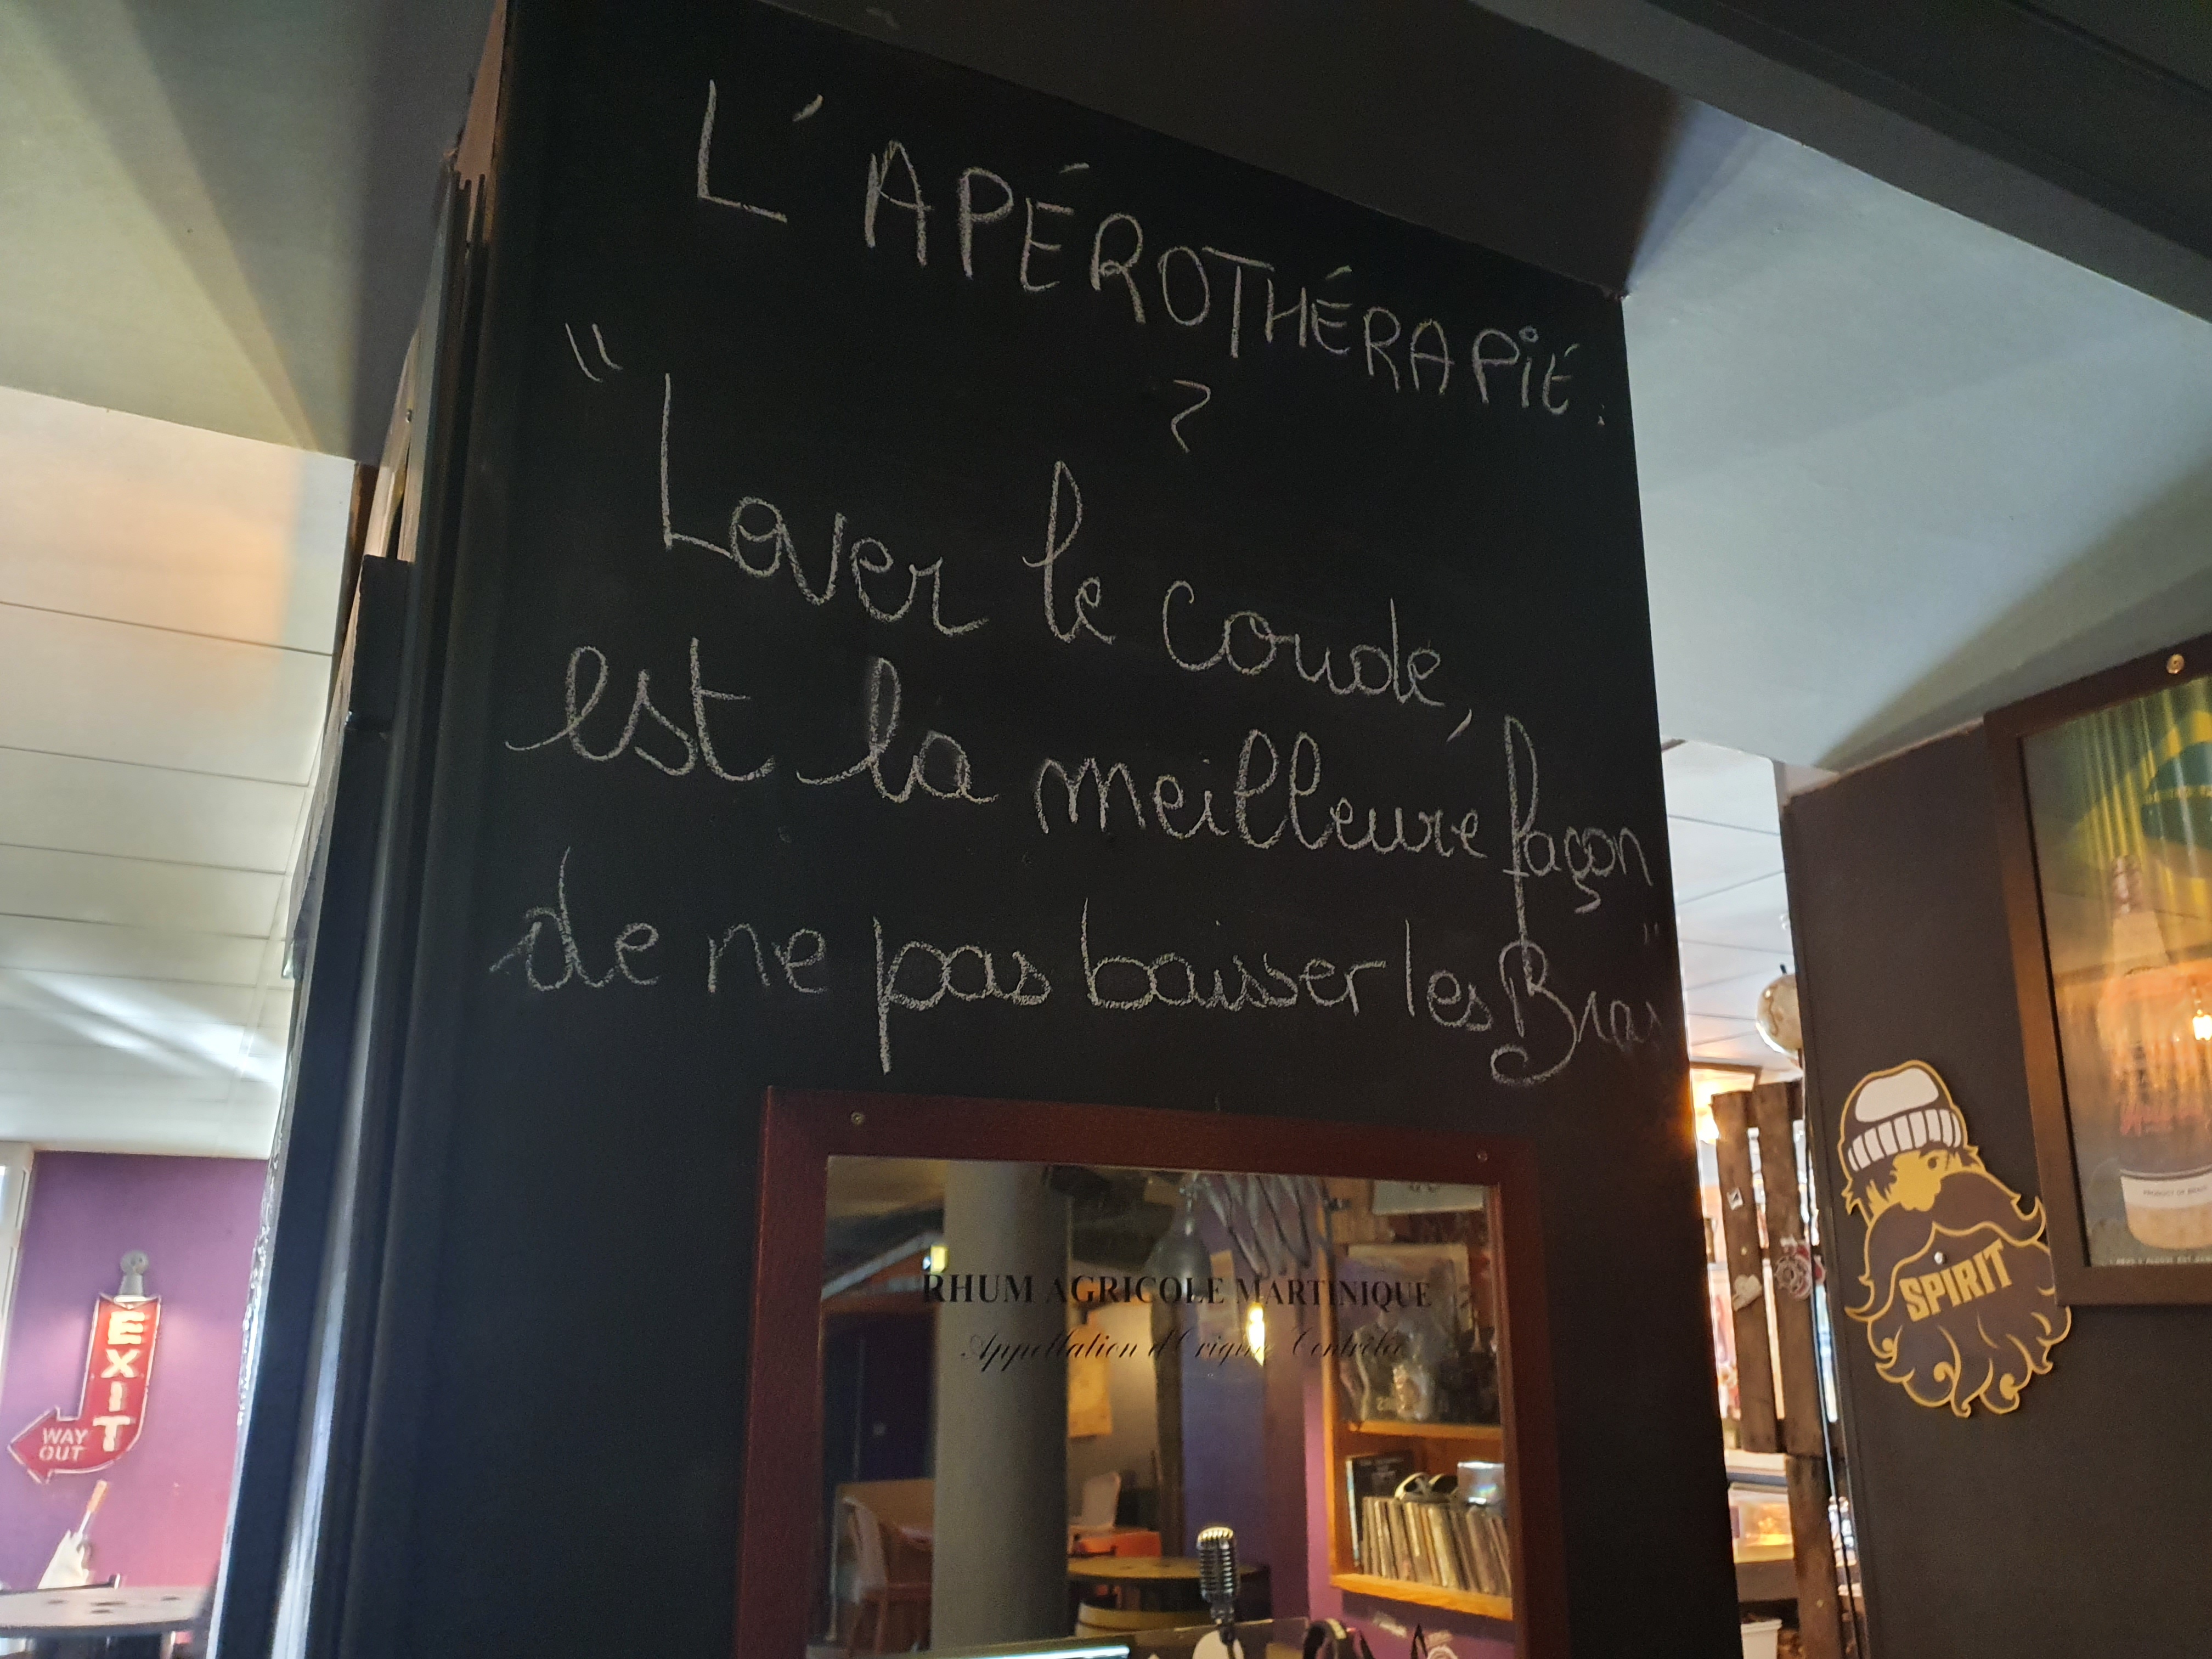 L'APÉROTHÉRAPIE.
?
"Lover le coude,
est la meilleure façon
de ne pas baisser les Bras"
RHUM AGRICOLE MARTINIQUE
Appellation d'Origine Contrôlée
EXIT
WAY
OUT
SPIRIT